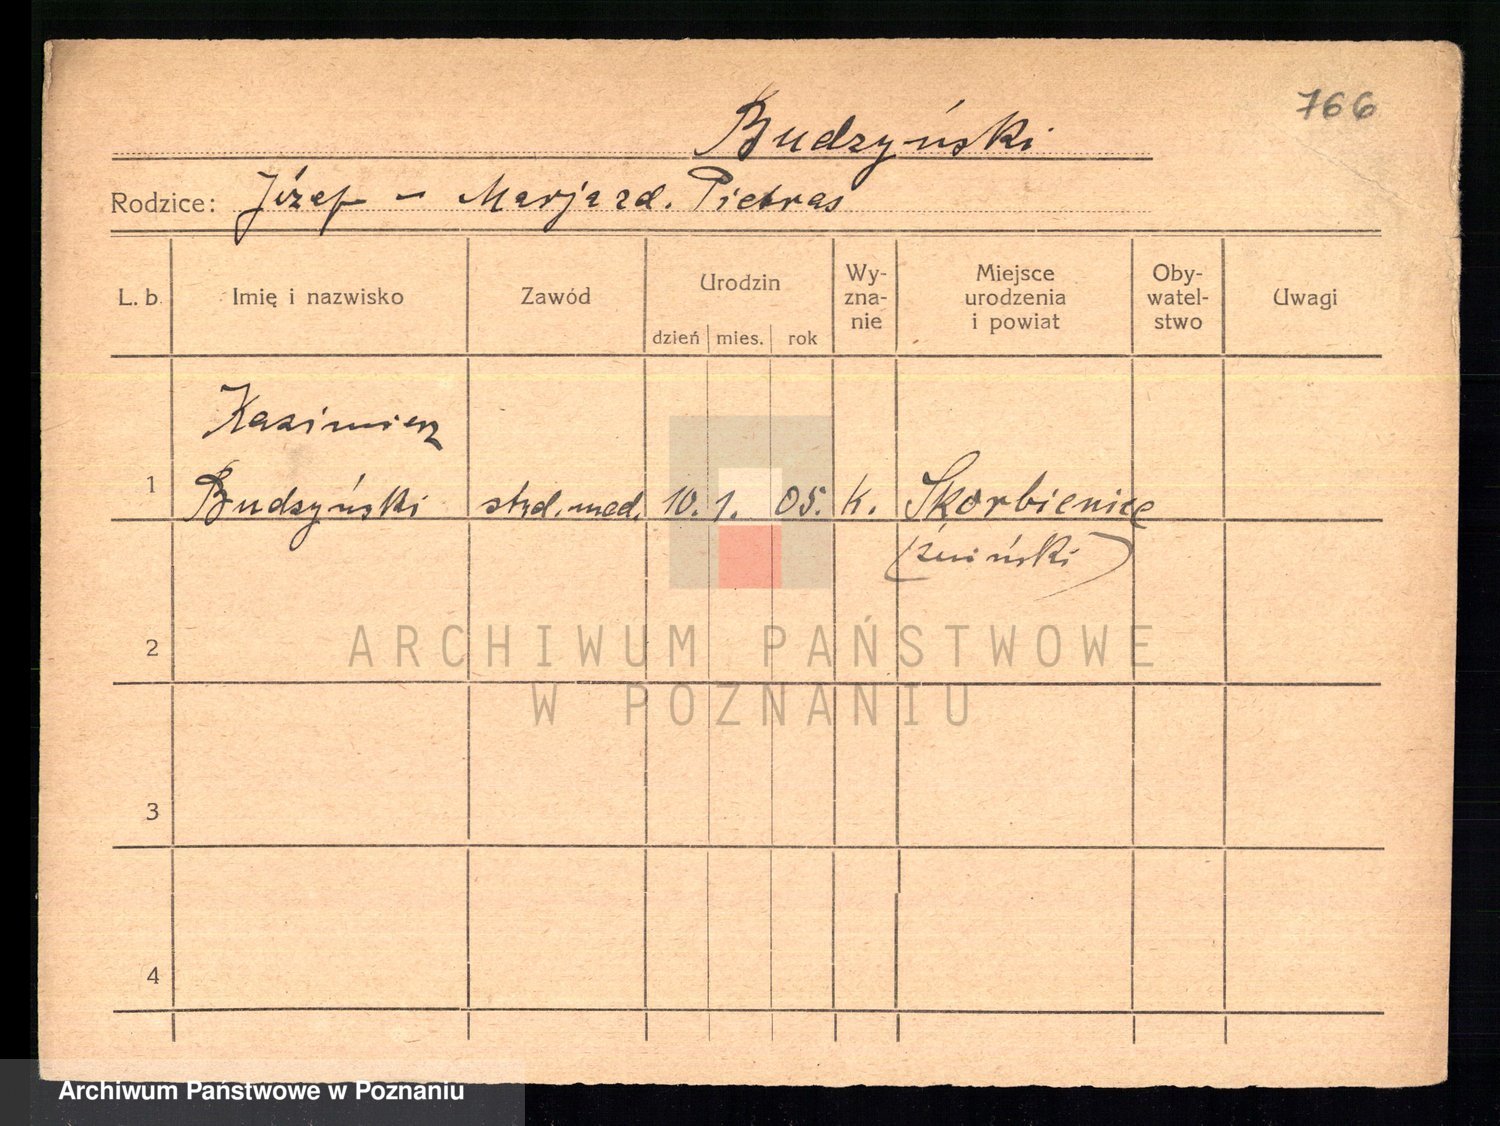 766
Budzyński
Rodzice: Józef – Marja zd. Pietras
L. b. Imię i nazwisko Zawód Urodzin dzień mies. rok Wy-zna-nie Miejsce urodzenia i powiat Oby-watel-stwo Uwagi
Kazimierz
1 Budzyński stud. med. 10. 1. 05. k. Skorbienice
(żniński)
2
ARCHIWUM PAŃSTWOWE
W POZNANIU
3
4
Archiwum Państwowe w Poznaniu